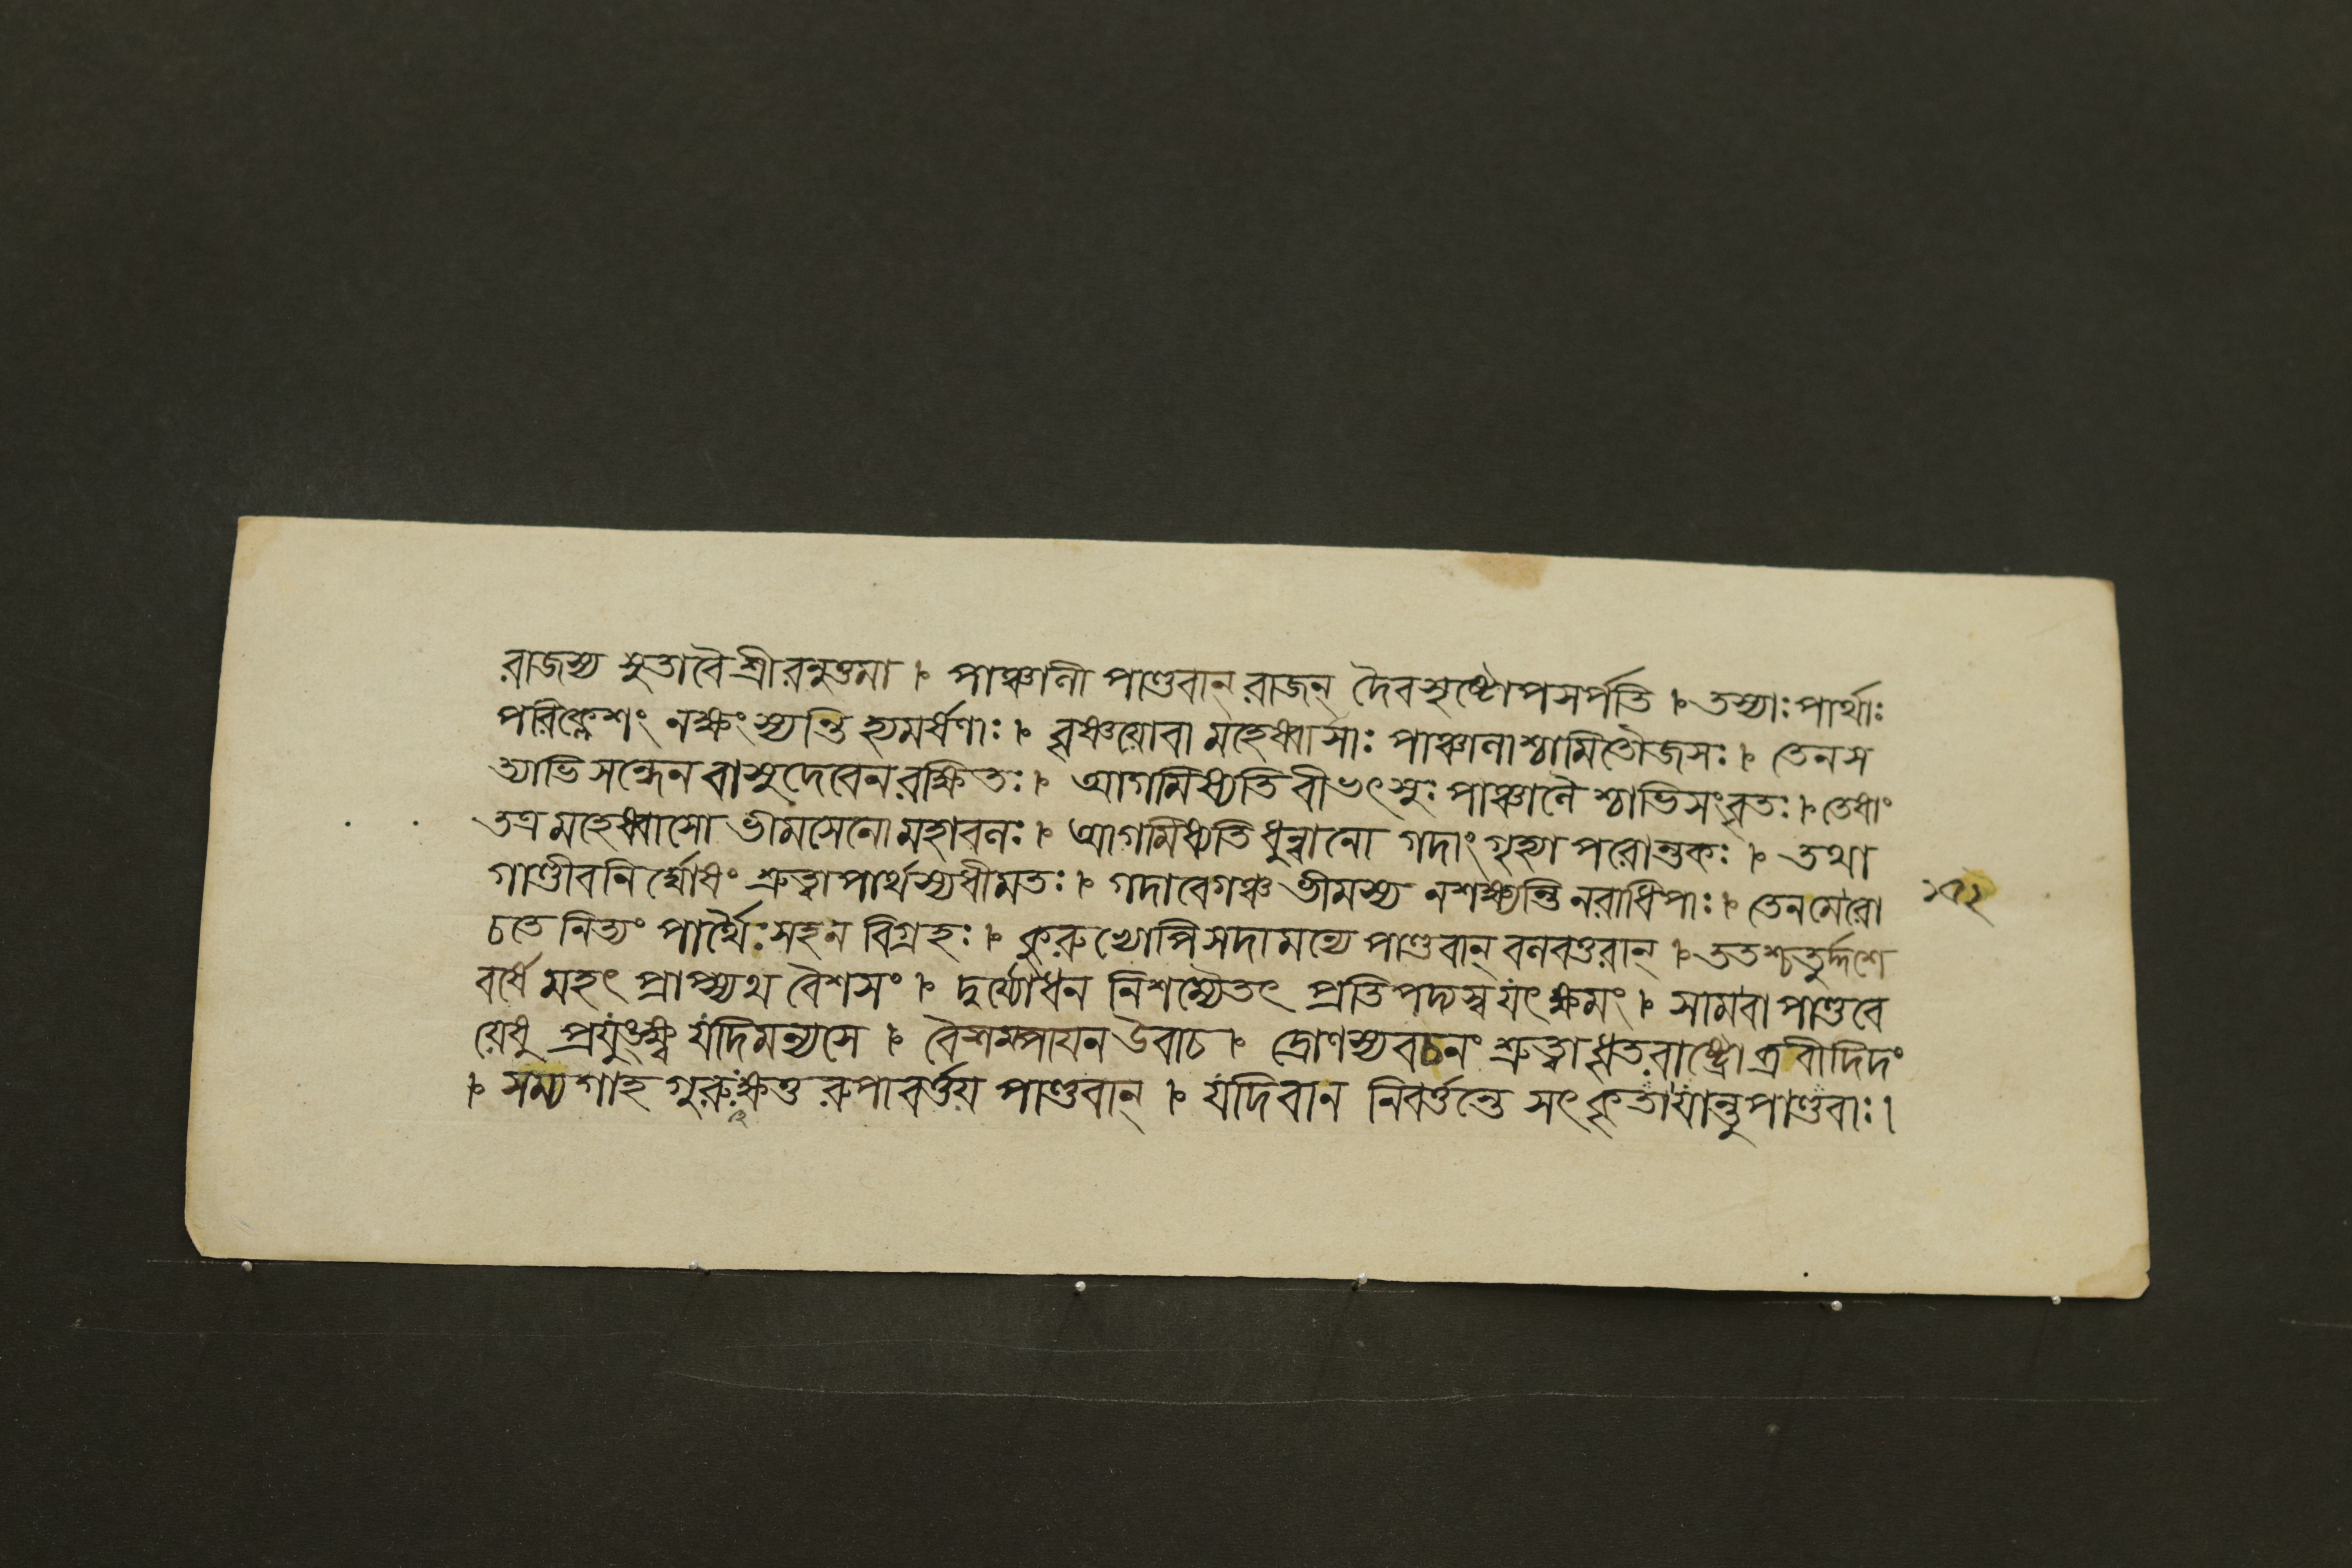 রাজস্য সুতাবৈশ্রীরনুত্তমা । পাঞ্চালী পাণ্ডবান্ রাজন্ দৈবসৃষ্টোপসর্পতি । তস্যাঃ পার্থাঃ
পরিক্লেশং নক্ষংস্যন্তি হ্যমর্ষণাঃ । বৃষ্ণয়োবা মহেষ্বাসাঃ পাঞ্চালাশ্চামিতৌজসঃ । তেনস
ত্যাভিসন্ধেন বাসুদেবেন রক্ষিতঃ । আগমিষ্যতি বীভৎসুঃ পাঞ্চালৈশ্চাভিসংবৃতঃ । তেষাং
তত্র মহেষ্বাসো ভীমসেনো মহাবলঃ । আগমিষ্যতি ধুন্বানো গদাং গৃহ্যা পরোন্তকঃ । তথা
গাণ্ডীবনির্ঘোষং শ্রুত্বা পার্থস্যধীমতঃ । গদাবেগঞ্চ ভীমস্য নশক্ষ্যন্তি নরাধিপাঃ । তেনমেরো
চতে নিত্যং পার্থৈঃ সহন বিগ্রহঃ । কুরুভ্যোপিসদামন্যে পাণ্ডবান্ বলবত্তরান্ । ততশ্চতুর্দ্দশে
বর্ষে মহৎ প্রাপ্স্যথ বৈশসং । দুর্য্যোধন নিশম্যৈতৎ প্রতিপদ্যস্বযৎক্ষমং । সামবা পাণ্ডবে
য়েষু প্রযুংক্ষ্ব যদিমন্যসে । বৈশম্পায়ন উবাচ । দ্রোণস্যবচনং শ্রুত্বা ধৃতরাষ্ট্রোব্রবীদিদং
। সম্যগাহ গুরুঃক্ষত্ত রুপাবর্ত্তয় পাণ্ডবান্ । যদিবান নিবর্ত্তন্তে সৎকৃতাযান্তু পাণ্ডবাঃ ।